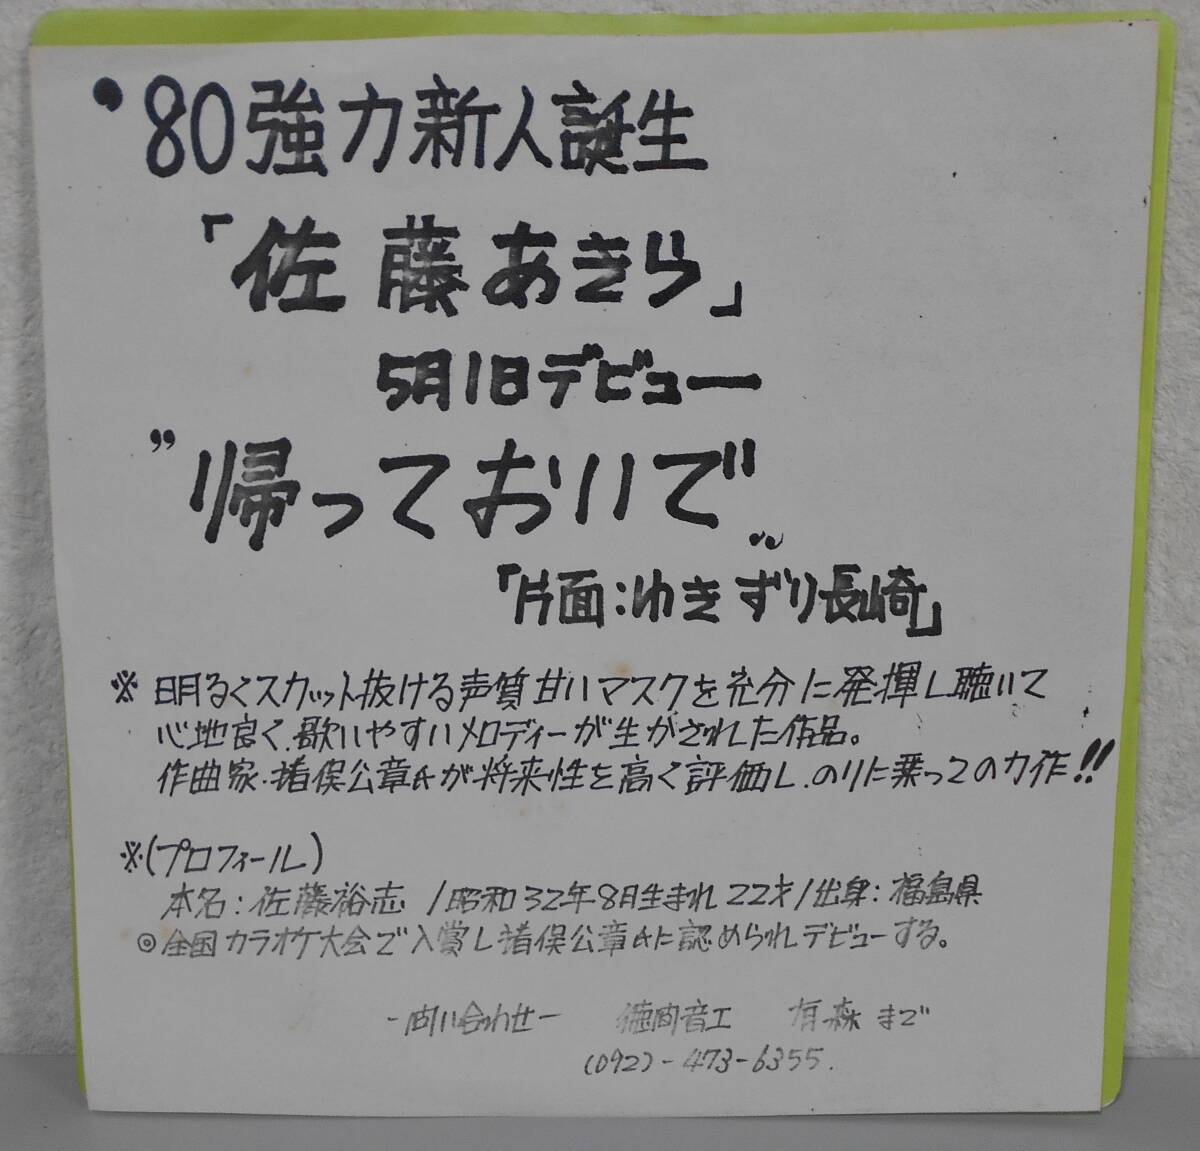 '80強力新人誕生
「佐藤あきら」
5月1日デビュー
”帰っておいで〟
「片面：ゆきずり長崎」
※明るくスカット抜ける声質甘いマスクを充分に発揮し聴いて
心地良く、歌いやすいメロディーが生かされた作品。
作曲家・猪俣公章氏が将来性を高く評価し、のりに乗っての力作!!
※(プロフィール)
本名：佐藤裕志 /昭和32年8月生まれ22才/出身：福島県
◎全国カラオケ大会で入賞し猪俣公章氏に認められデビューする。
-問い合わせ- 徳間音工 有森まで
(092)-473-6355.